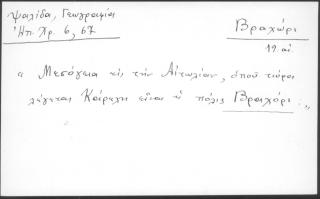 Ψαλίδα, Γεωγραφία
Ἠπ. Χρ. 6, 67
Βραχώρι
19. αἰ
« Μεσόγεια εἰς τὴν Αἰτωλίαν, ὁποῦ τώρα
λέγεται Κάρλελη εἶναι ἡ πόλις Βραχόρι.. »